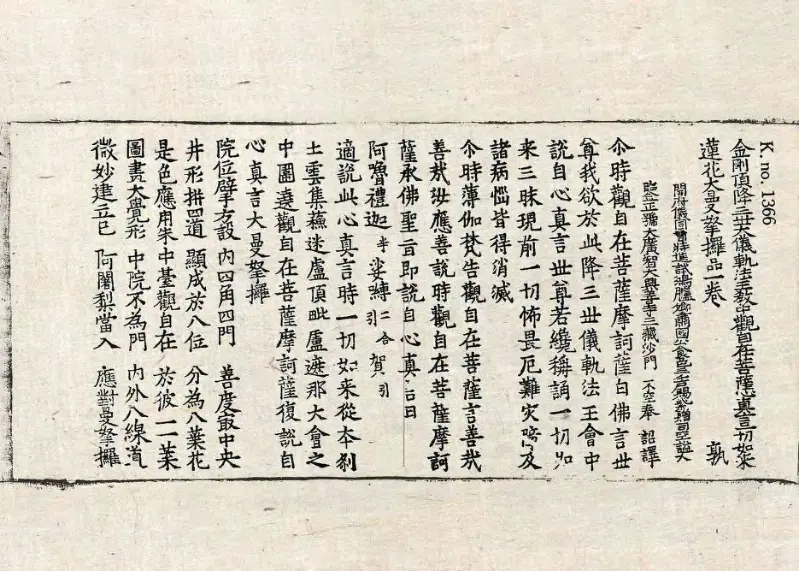 K. no. 1366
金剛頂降三世大儀軌法王教中觀自在菩薩心真言一切如來
蓮花大曼拏攞品一卷 孰
開府儀同三司特進試鴻臚卿肅國公食邑三千戶賜紫贈司空謚大
鑒正號大廣智大興善寺三藏沙門 不空奉 詔譯
尒時觀自在菩薩摩訶薩白佛言世
尊我欲於此降三世儀軌法王會中
說自心真言世尊若纔稱誦一切如
來三昧現前一切怖畏厄難灾及
諸病惱皆得消滅
尒時薄伽梵告觀自在菩薩言善哉
善哉汝應善說時觀自在菩薩摩訶
薩承佛聖旨即說自心真言曰
阿嚕禮迦 半 娑嚩 二合引 賀 引
適說此心真言時一切如來從本剎
土雲集蘇迷盧頂毗盧遮那大會之
中圍遶觀自在菩薩摩訶薩復說自
心真言大曼拏攞
院位擘方設 內四角四門 善度取中央
井形拼四道 顯成於八位 分為八葉花
是色應用朱 中臺觀自在 於彼一一葉
圖畫大覺形 中院不為門 內外八線道
微妙建立已 阿闍梨當入 應對曼拏攞